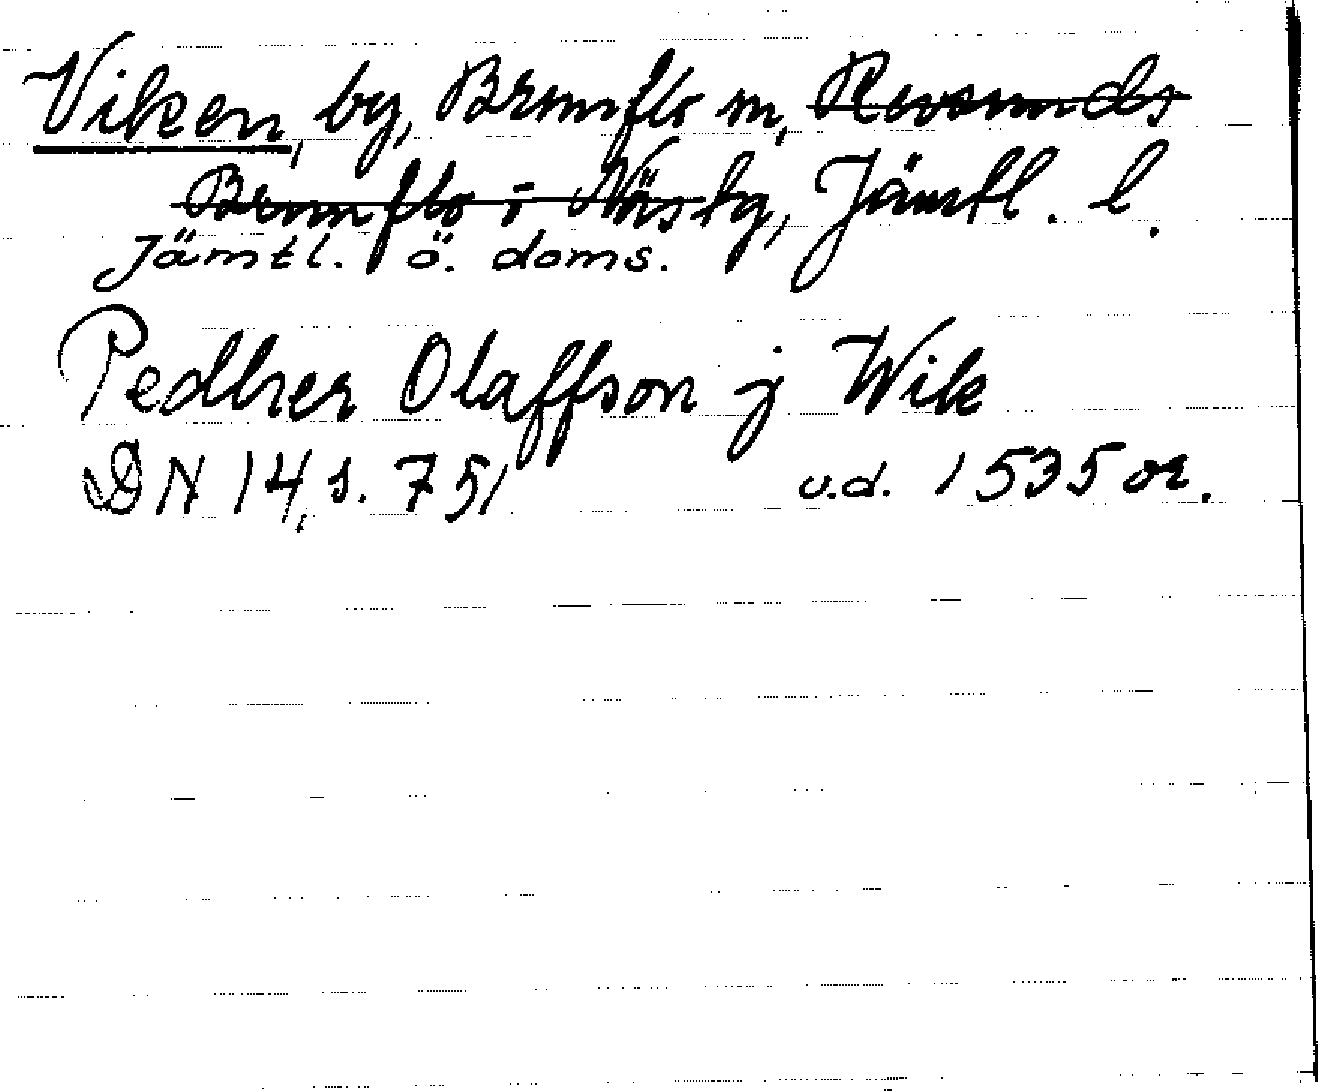 Viken, by, Brunflo sn, Revsunds
Brunflo o Näs tg, Jämtl. l.
Jämtl. ö. doms.
Pedher Olaffson j Wik
DN 14, s. 751 u.d. 1535 or.